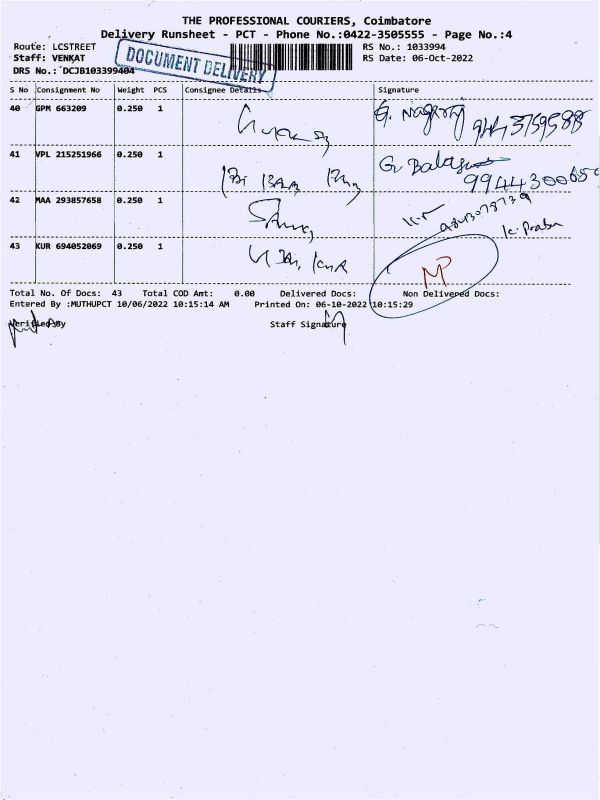 THE PROFESSIONAL COURIERS, Coimbatore
Delivery Runsheet - PCT - Phone No.:0422-3505555 - Page No.:4
Route: LCSTREET
RS No.: 1033994
Staff: VENKAT
RS Date: 06-Oct-2022
DRS No.: DCJB103399404
DOCUMENT DELIVERY
S No Consignment No Weight PCS Consignee Details Signature
40 GPM 663209 0.250 1
G. Nagaraj
41 VPL 215251966 0.250 1
G. Balasu
9944300650
42 MAA 293857658 0.250 1
K. Prabu
43 KUR 694052069 0.250 1
NP
Total No. Of Docs: 43 Total COD Amt: 0.00 Delivered Docs: Non Delivered Docs:
Entered By :MUTHUPCT 10/06/2022 10:15:14 AM Printed On: 06-10-2022 10:15:29
Verified By Staff Signature